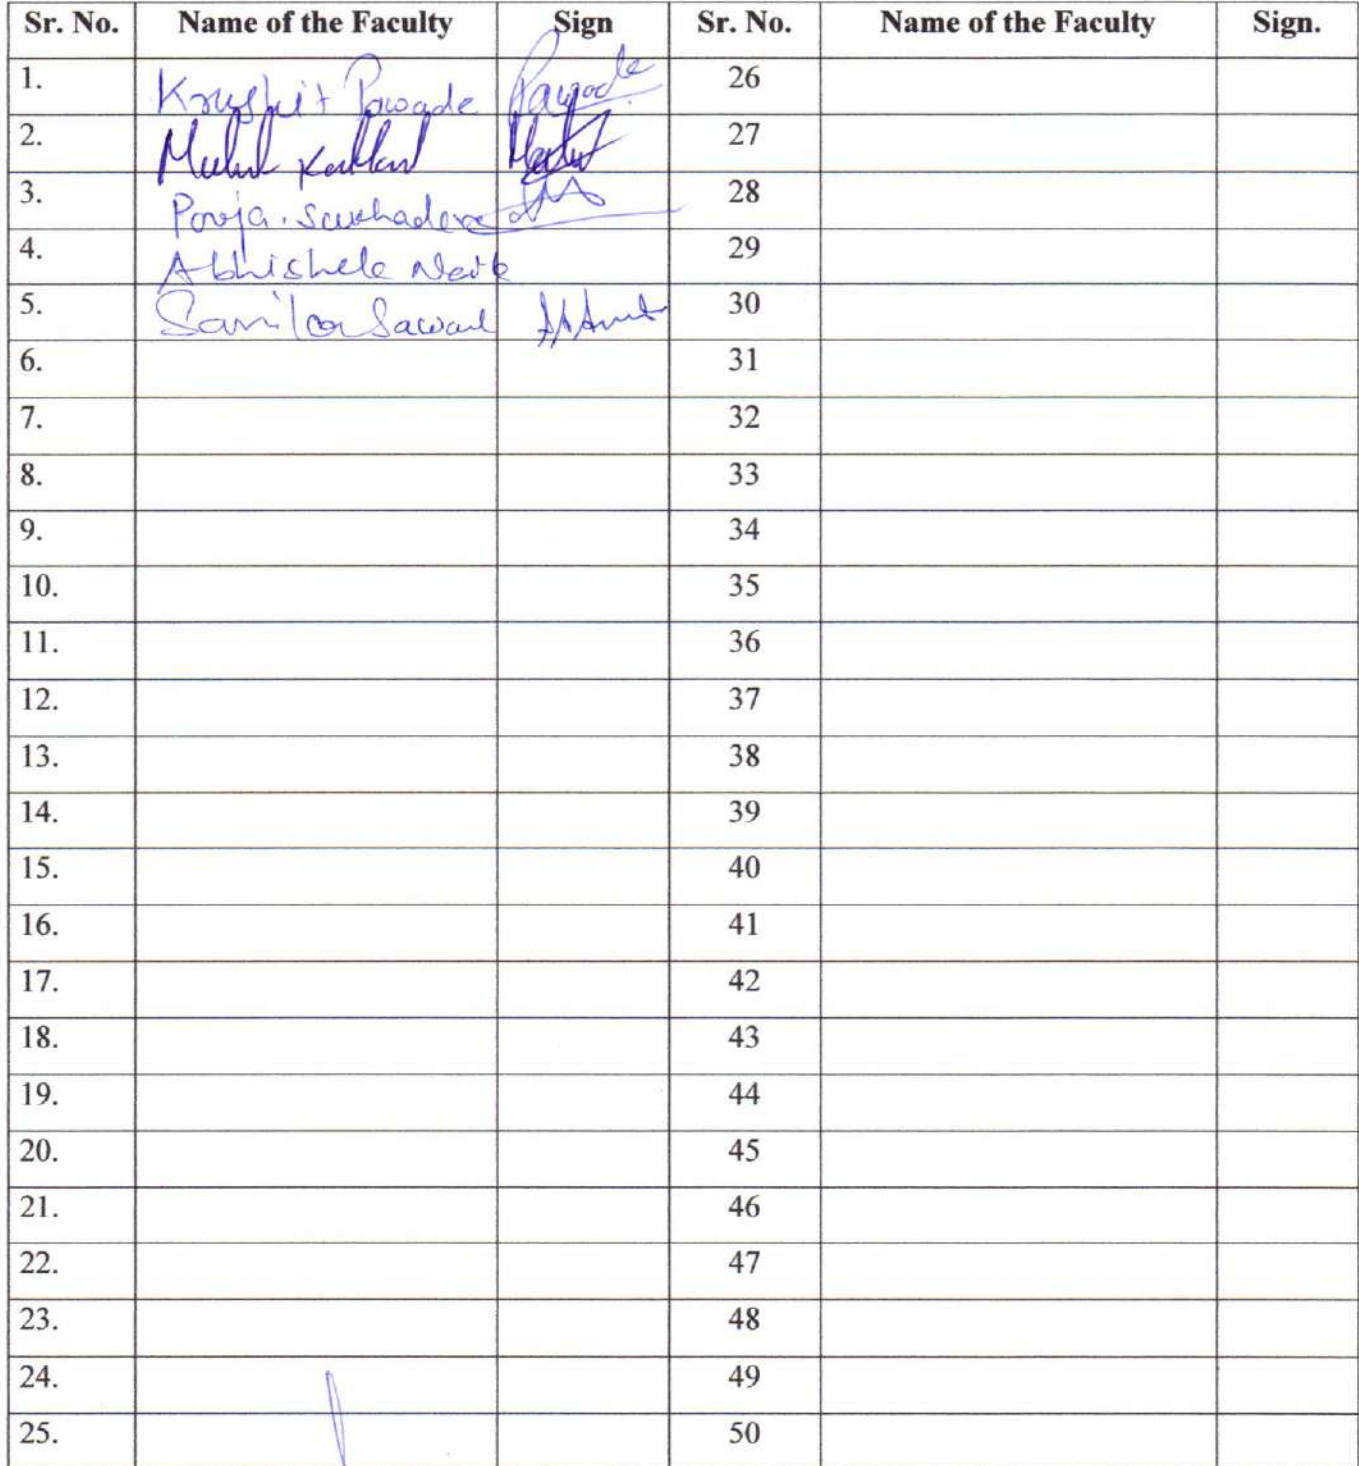 Sr. No. Name of the Faculty Sign Sr. No. Name of the Faculty Sign.
1. Pawade 26
2. 27
3. Pooja. 28
4. Abhishek Naik 29
5. Sawant 30
6. 31
7. 32
8. 33
9. 34
10. 35
11. 36
12. 37
13. 38
14. 39
15. 40
16. 41
17. 42
18. 43
19. 44
20. 45
21. 46
22. 47
23. 48
24. 49
25. 50